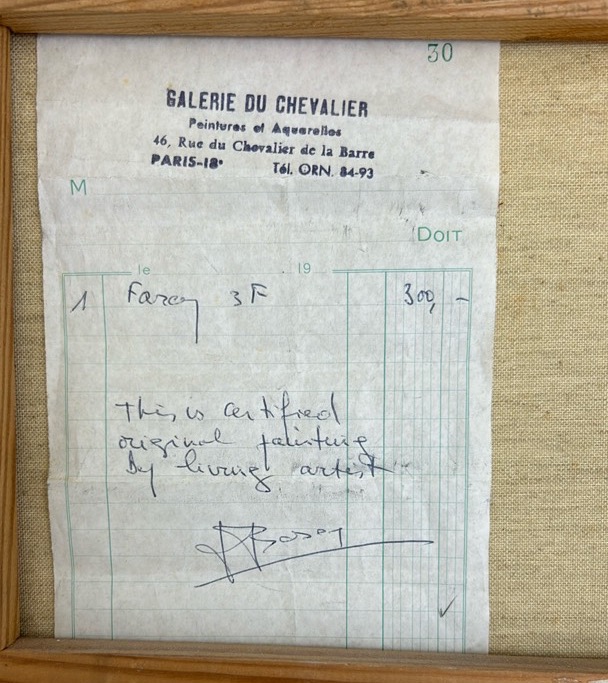 30
GALERIE DU CHEVALIER
Peintures et Aquarelles
46, Rue du Chevalier de la Barre
PARIS-18e Tél. ORN. 84-93
M
DOIT
le 19
1 3F 300, -
This is certified
original painting
by living artist